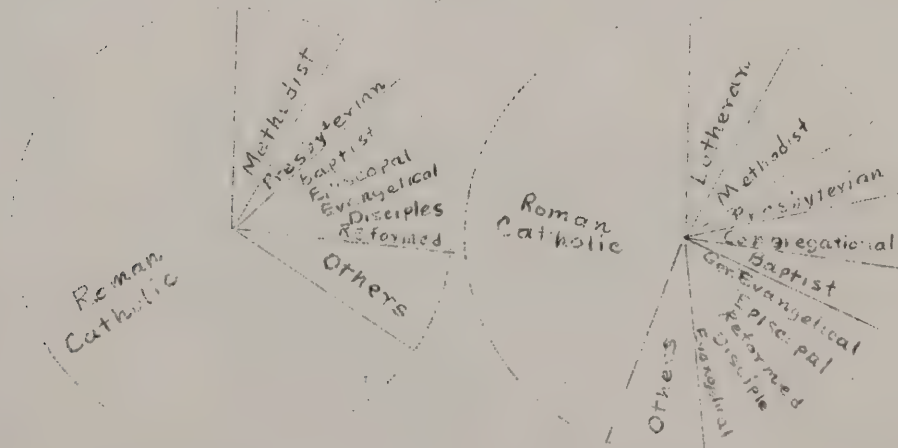 Methodist
Presbyterian
Baptist
Episcopal
Evangelical
Disciples
Reformed
Others
Roman
Catholic
Lutheran
Methodist
Presbyterian
Congregational
Baptist
Ger. Evangelical
Episcopal
Reformed
Disciple
Evangelical
Others
Roman
Catholic